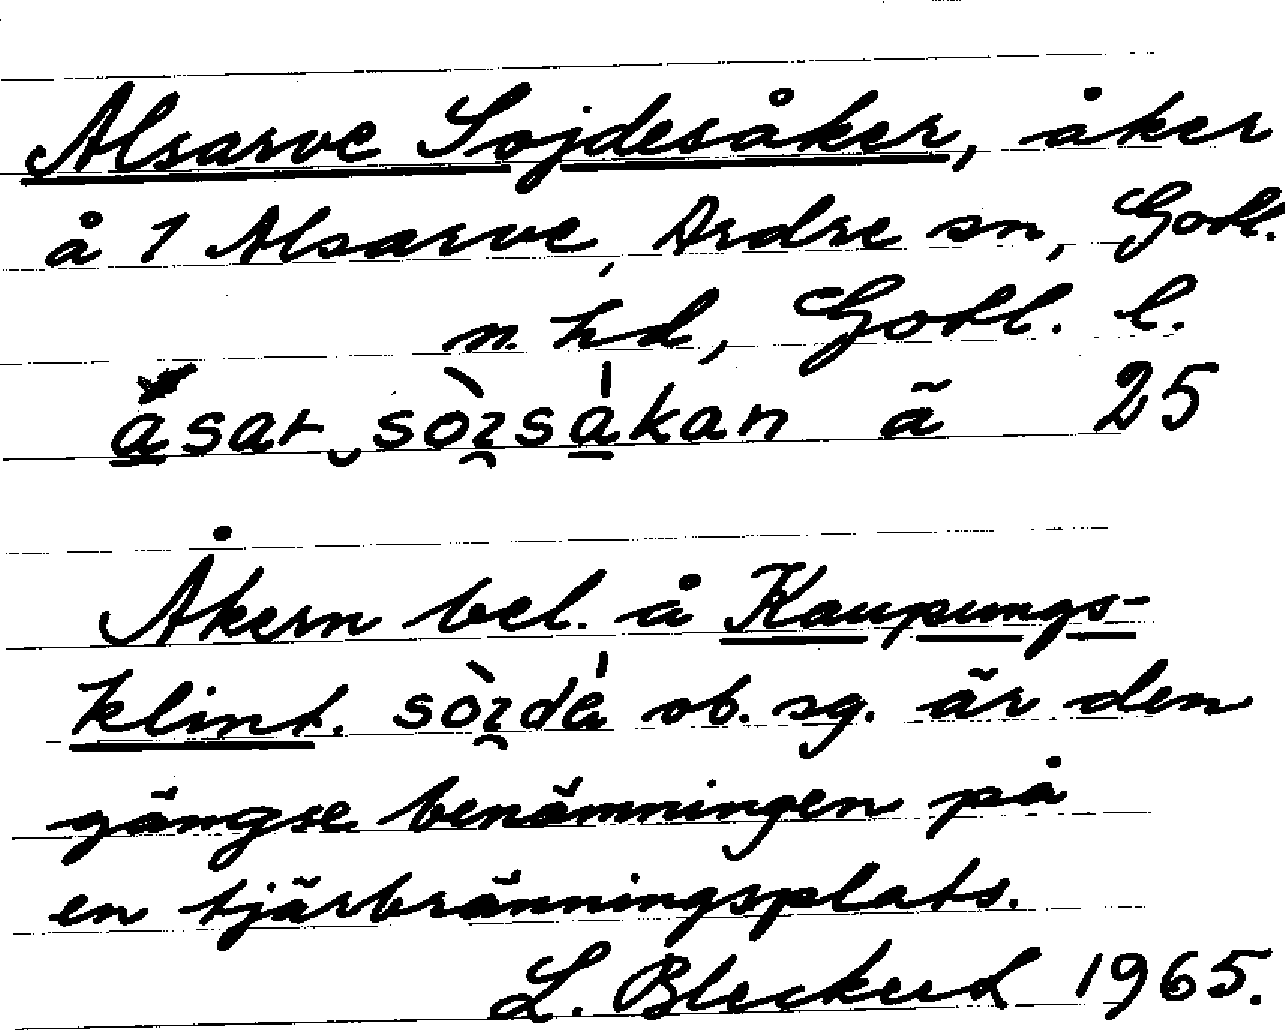 Alsarve Sojdesåker, åker
å 1 Alsarve, Ardre sn, Gotl.
n. hd, Gotl. l.
åsat sòʒsákan ã 25
Åkern bel. å Kaupungs-
klint. sòʒdá ob. sg. är den
gängse benämningen på
en tjärbränningsplats.
L. Bleckert 1965.